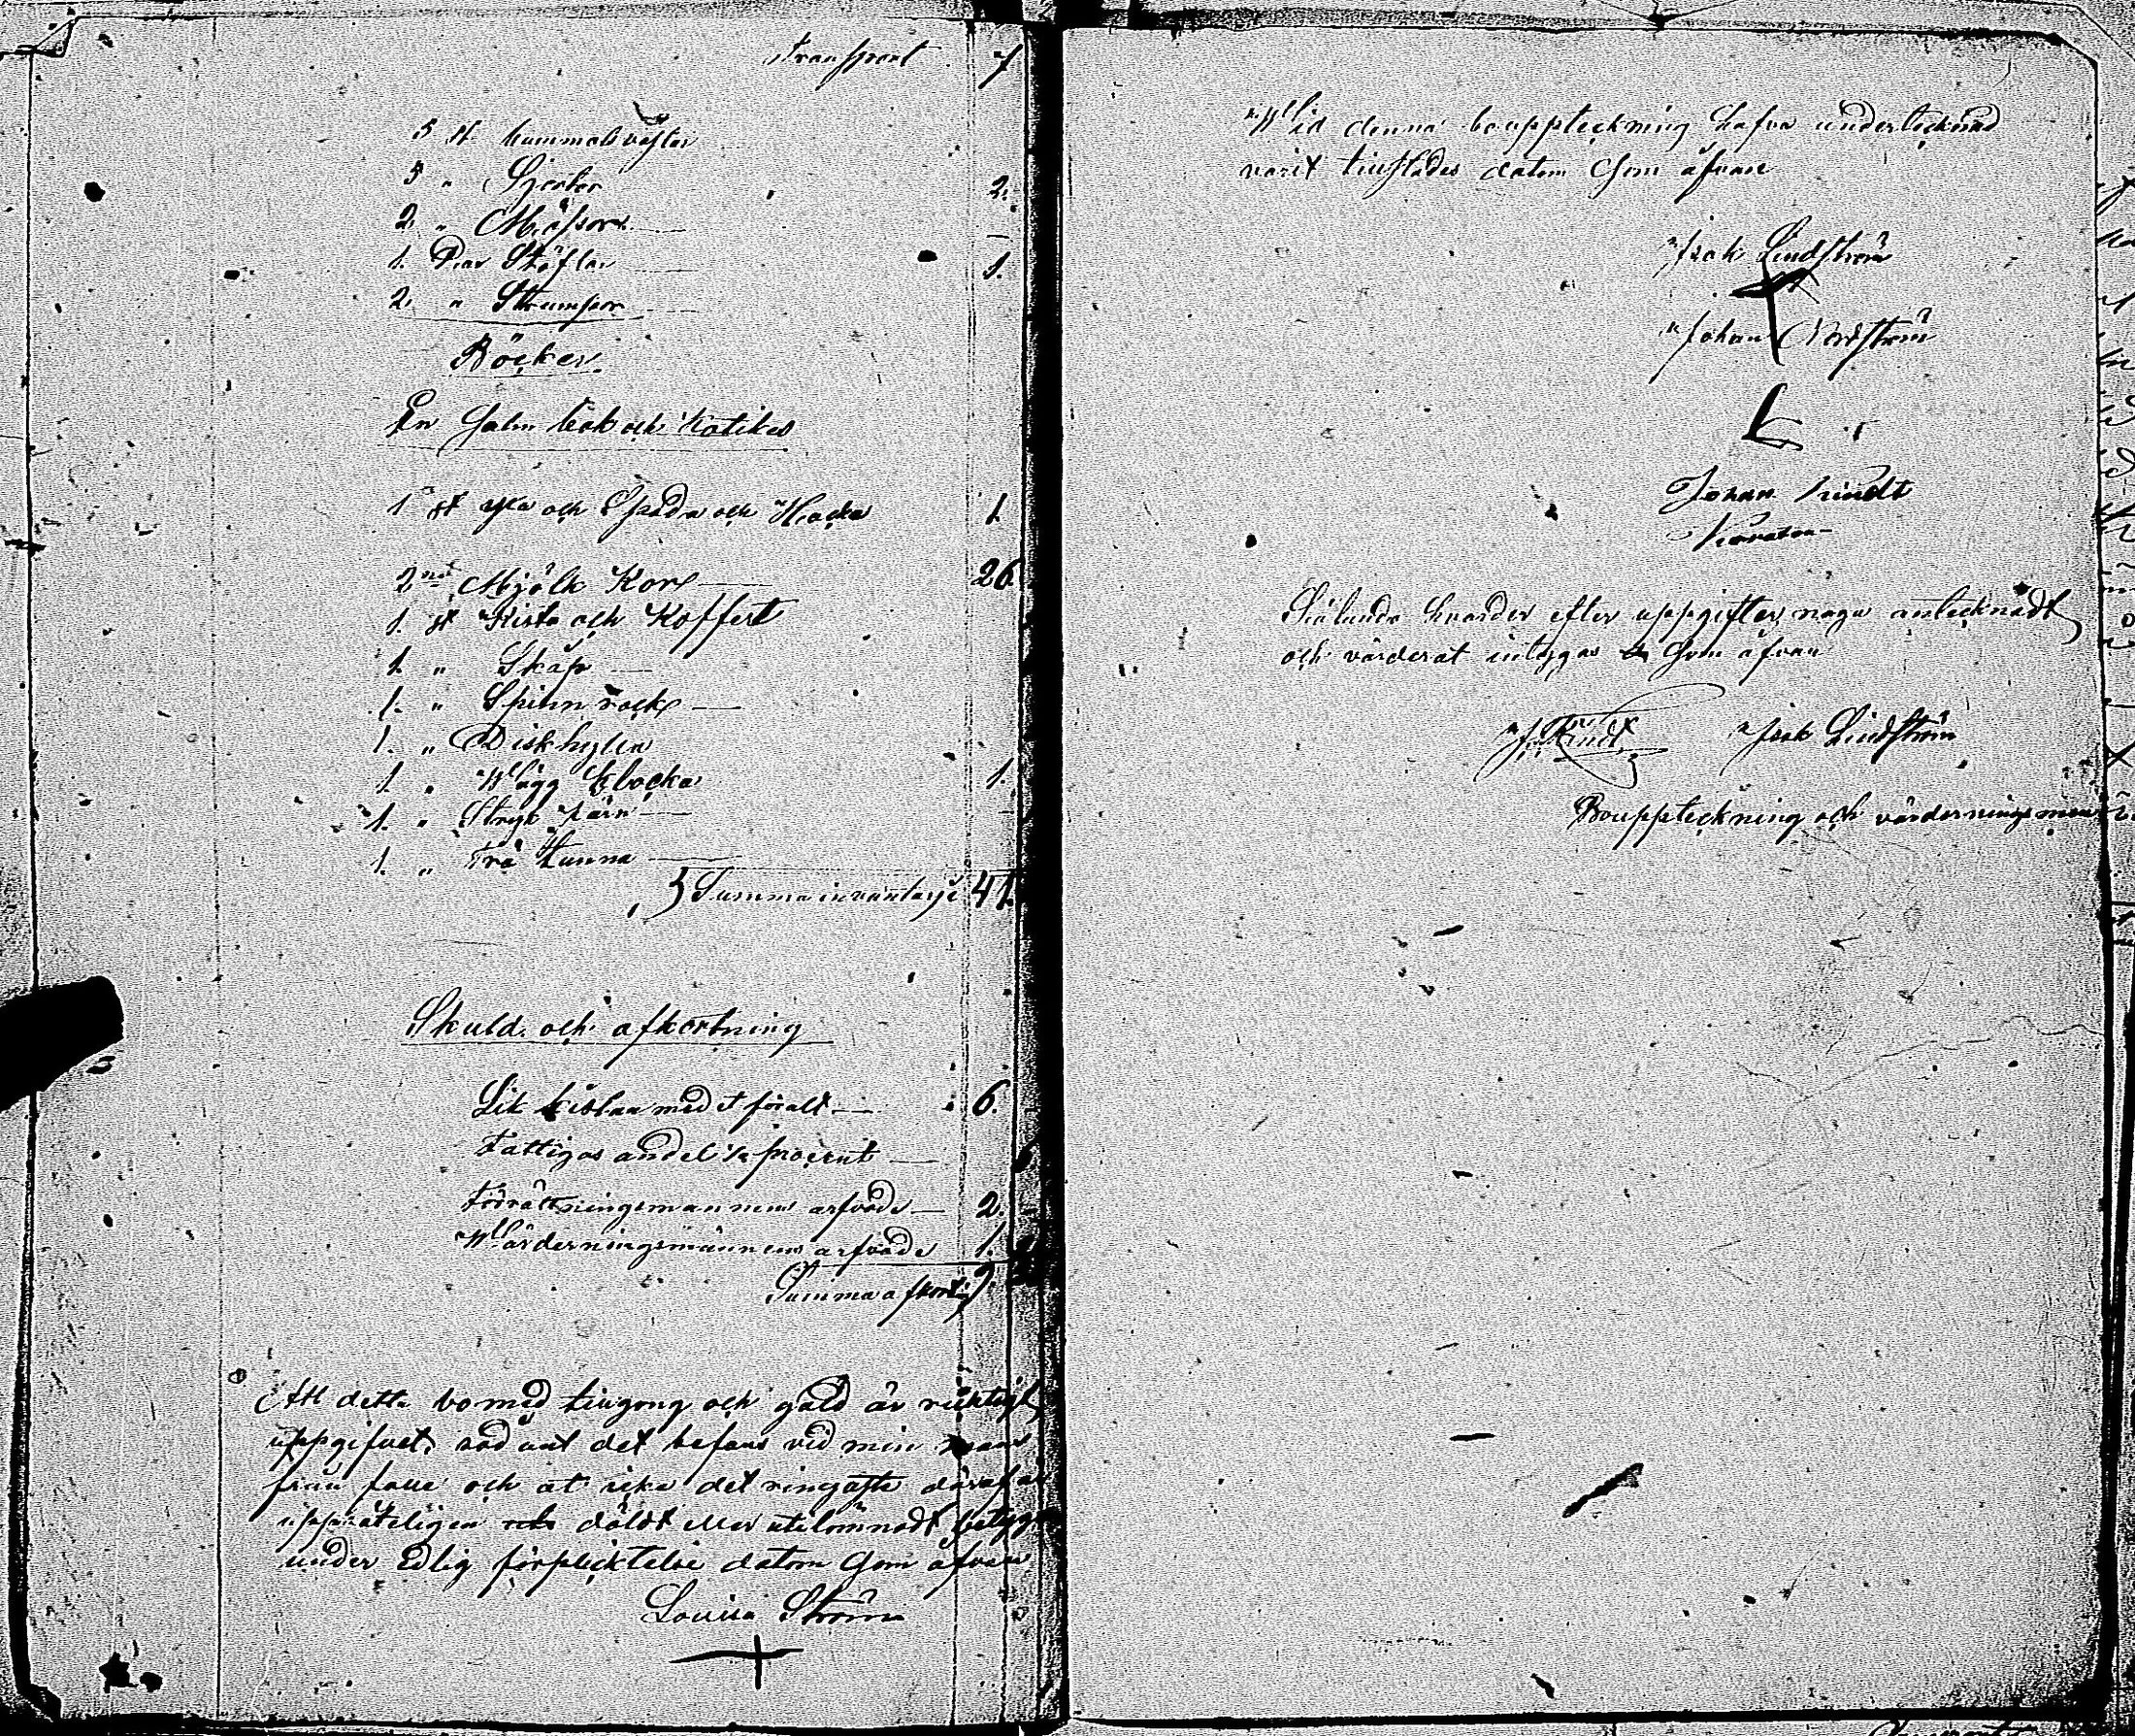 Transport 7
5 st bummols västar
5 " Sjortor 2.
2. " Mössor —
1. Par Stöflar 1.
2. " Strumpor
Böcker
En Salm bok och Katikes
1 st yxa och Spada och Hacka 1.
2 ne Mjölk Kor 26.
1. st Kista och Koffert
1. " Skåp
1. " Spinn rock
1. " Diskhylla
1. " Wägg klocka 1.
1. " Stryk järn
1. " Trä tunna
Summa invantarje 41.
Skuld och afkortning
Lik kistan med t föralt 6.
Fattigas andel procent
Förrättningsmannens arfvode 2.
Wärderningsmännens arfvode 1.
Summa afkort 9.
Att detta bo med tingong och gäld är ricktigt
uppgifvet sådant det befans vid min mans
från falle och at icke det ringaste däraf är
uppsåteligen döldt eller utelämnadt betygas
under Edlig förplicktelse datom Som åfvan
Lovisa Ström
Wid denna bouppteckning hafva undertecknad
varit tillstädes datom Som åfvan
Isak Lindström
Johan Nordström
Johan
Sålunda hvarder efter uppgifter noga antecknadt
och värderat intygas Som åfvan
Isak Lindström
Bouppteckning och värdernings män